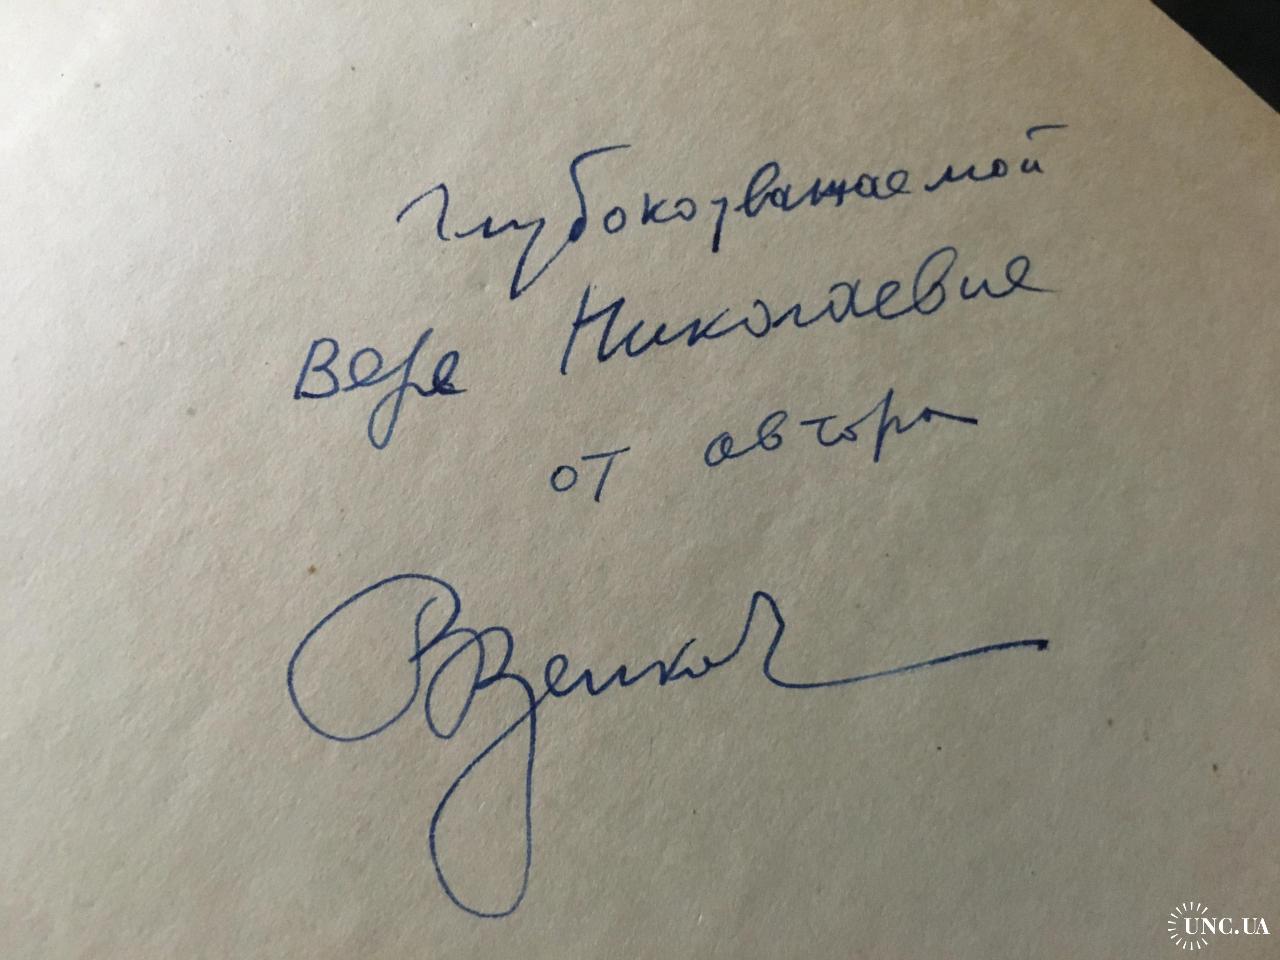 Глубокоуважаемой
Вере Николаевне
от автора
UNC.UA